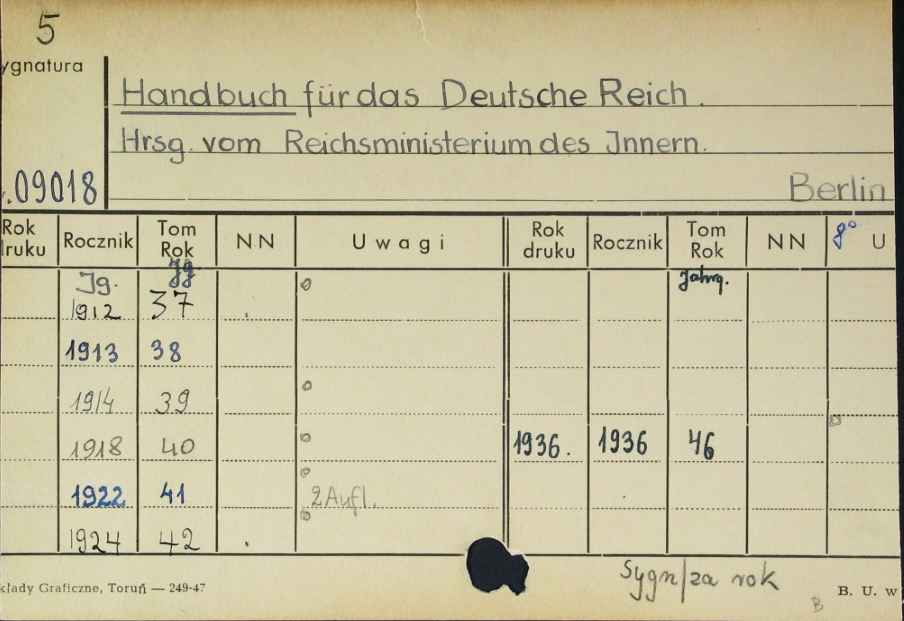 5
ygnatura
Handbuch für das Deutsche Reich.
Hrsg. vom Reichsministerium des Jnnern.
.09018
Berlin
Rok druku Rocznik Tom Rok NN Uwagi Rok druku Rocznik Tom Rok NN 8° U
Jg. Jg Jahrg.
1912 37
1913 38
1914 39
1918 40 1936. 1936 46
1922 41 2 Aufl.
1924 42
Sygn/za rok
kłady Graficzne, Toruń — 249-47
B
B. U. w